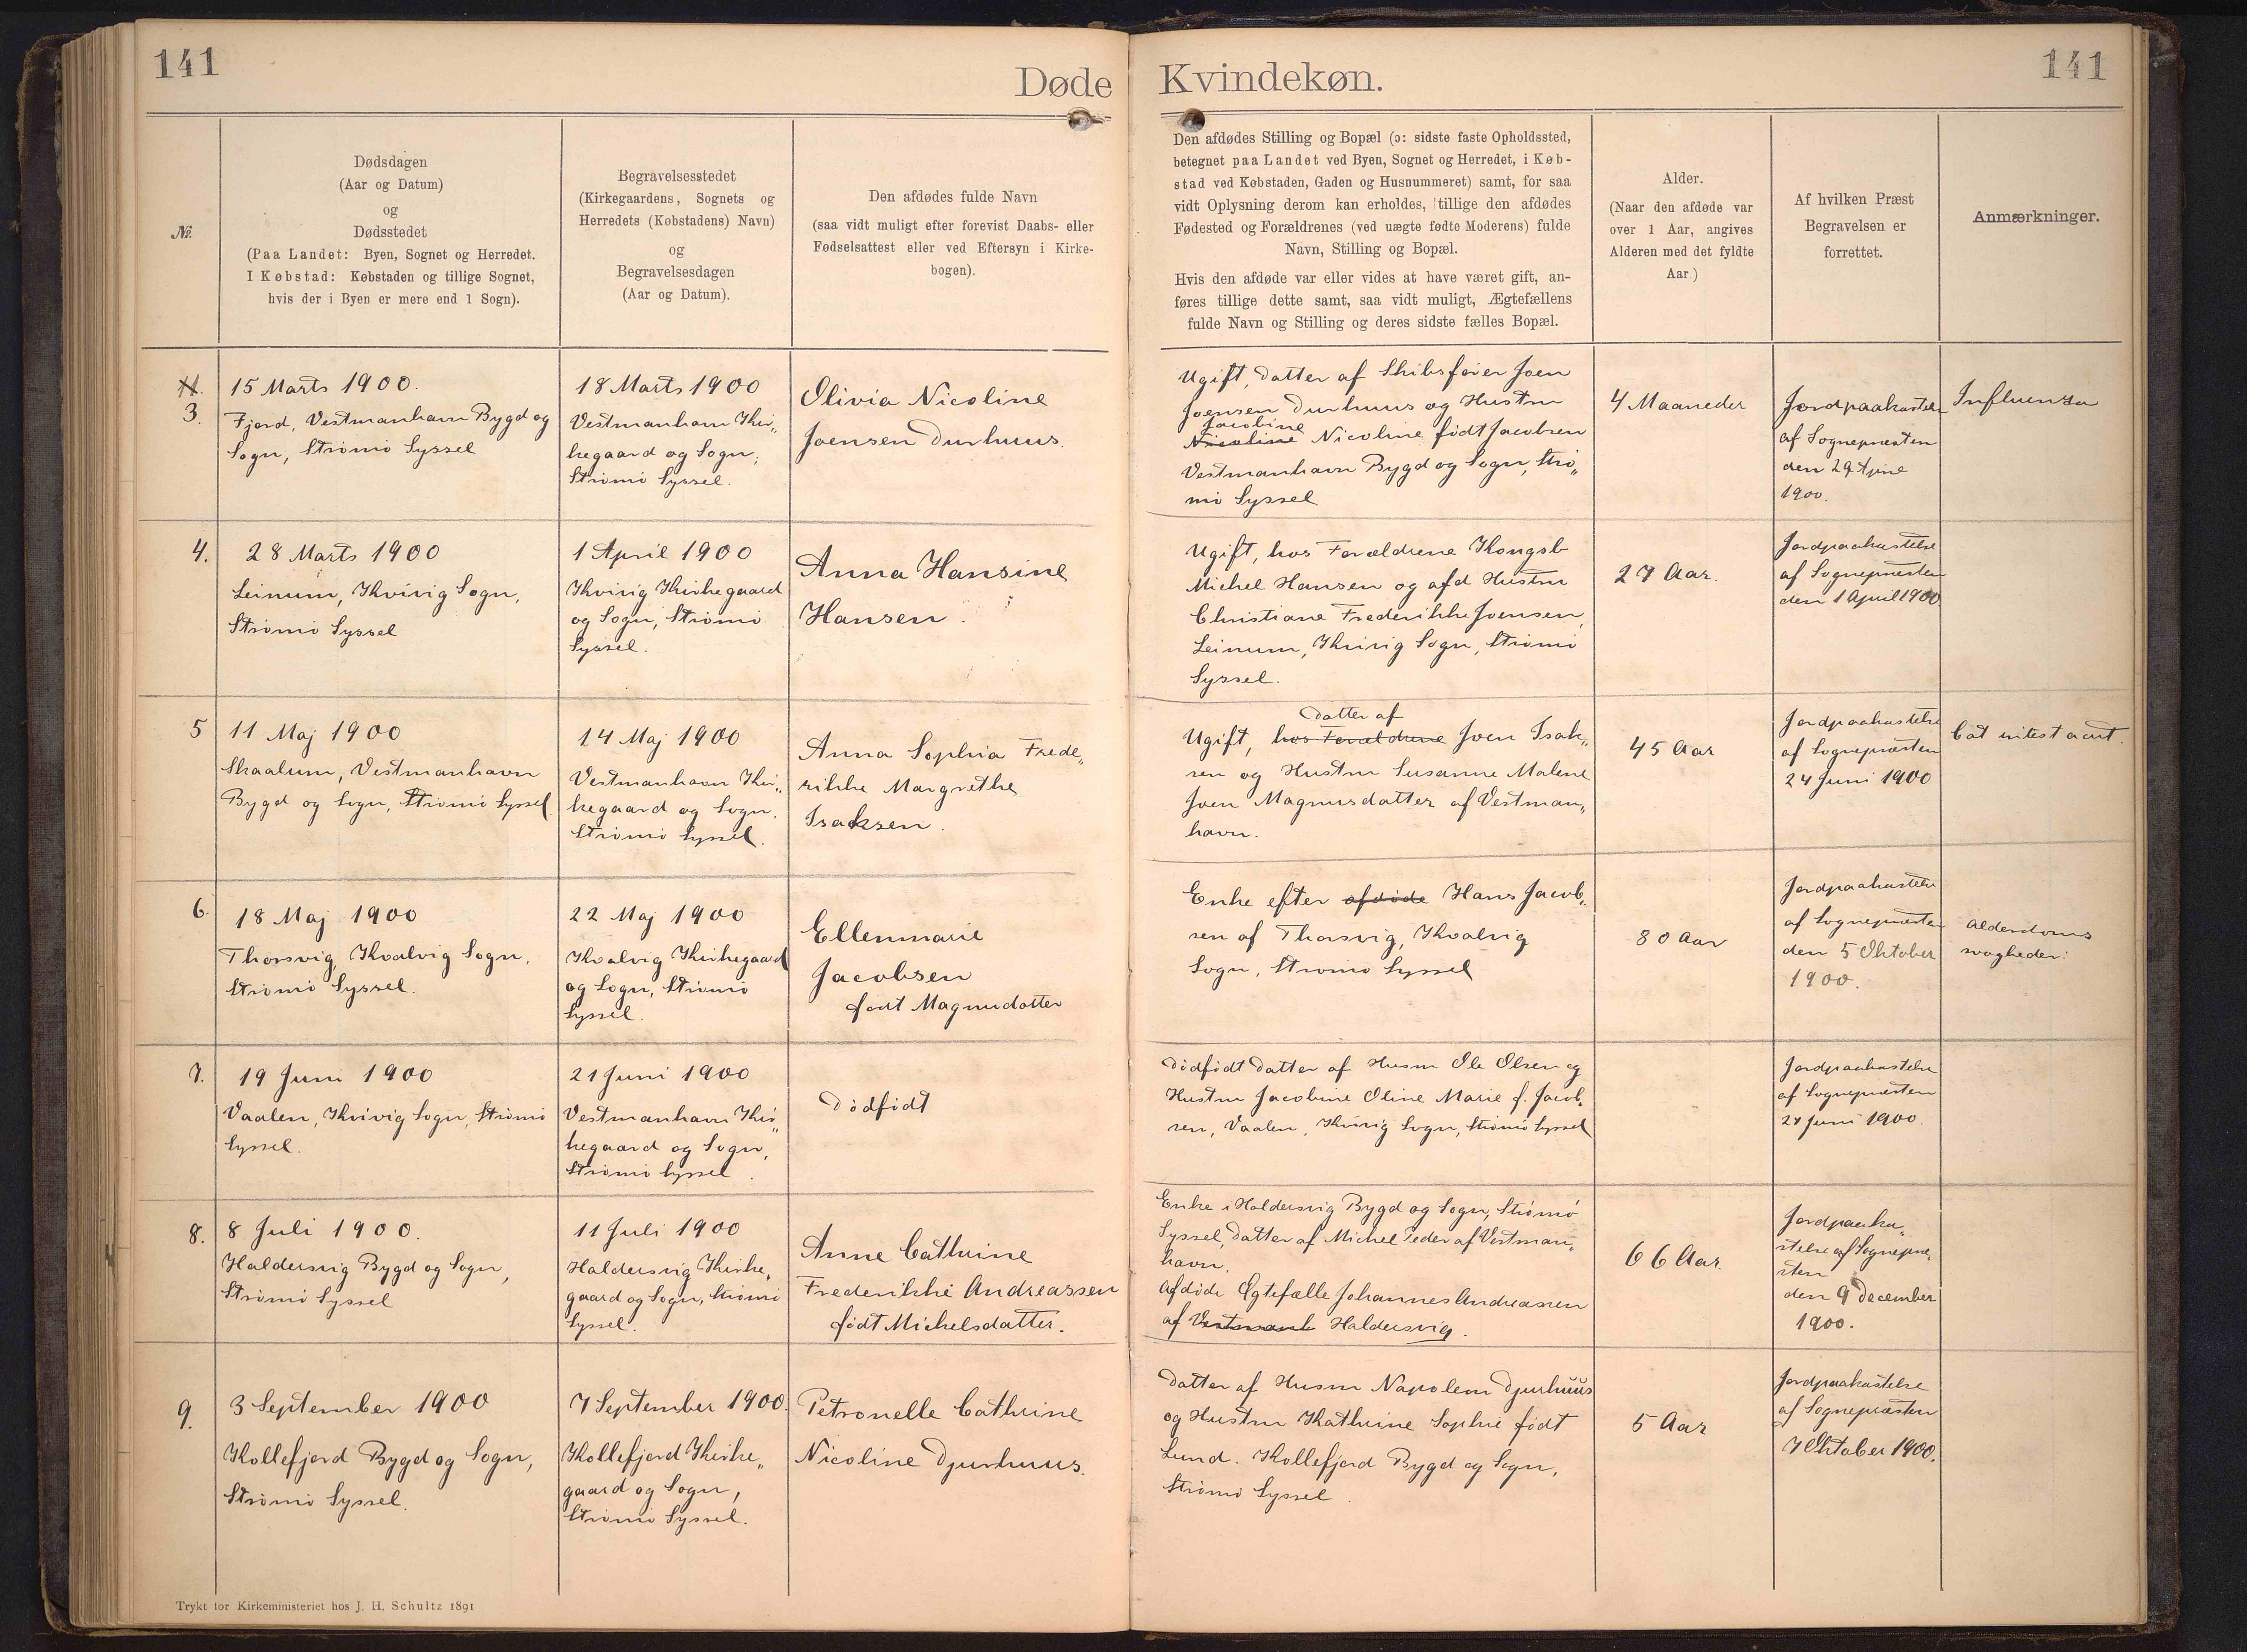 141
141
Døde Kvindekøn.
№
Dødsdagen
(Aar og Datum)
og
Dødsstedet
(Paa Landet: Byen, Sognet og Herredet.
I Købstad: Købstaden og tillige Sognet,
hvis der i Byen er mere end 1 Sogn).
Begravelsesstedet
(Kirkegaardens, Sognets og
Herredets (Købstadens) Navn)
og
Begravelsesdagen
(Aar og Datum).
Den afdødes fulde Navn
(saa vidt muligt efter forevist Daabs- eller
Fødselsattest eller ved Eftersyn i Kirke-
bogen).
Den afdødes Stilling og Bopæl (ɔ: sidste faste Opholdssted,
betegnet paa Landet ved Byen, Sognet og Herredet, i Køb-
stad ved Købstaden, Gaden og Husnummeret) samt, for saa
vidt Oplysning derom kan erholdes, tillige den afdødes
Fødested og Forældrenes (ved uægte fødte Moderens) fulde
Navn, Stilling og Bopæl.
Hvis den afdøde var eller vides at have været gift, an-
føres tillige dette samt, saa vidt muligt, Ægtefællens
fulde Navn og Stilling og deres sidste fælles Bopæl.
Alder.
(Naar den afdøde var
over 1 Aar, angives
Alderen med det fyldte
Aar.)
Af hvilken Præst
Begravelsen er
forrettet.
Anmærkninger.
3.
15 Marts 1900.
Fjord, Vestmanhavn Bygd og
Sogn, Strømø Syssel
18 Marts 1900
Vestmanhavn Kir„
kegaard og Sogn,
Strømø Syssel.
Olivia Nicoline
Joensen Durhuus.
Ugift, Datter af Skibsfører Joen
Joensen Durhuus og Hustru
Jacobine
Nicoline Nicoline født Jacobsen
Vestmanhavn Bygd og Sogn, Strø„
mø Syssel
4 Maaneder
Jordpaakastelse
af Sognepræsten
den 29
1900.
Influenza
4.
28 Marts 1900
Leinum, Kvivig Sogn,
Strømø Syssel
1 April 1900
Kvivig Kirkegaard
og Sogn, Strømø
Syssel.
Anna Hansine
Hansen.
Ugift, hos Forældrene Kongsb
Michel Hansen og afd Hustru
Christiane Frederikke Joensen,
Leinum, Kvivig Sogn, Strømø
Syssel.
27 Aar.
Jordpaakastelse
af Sognepræsten
den 1 April 1900
5
11 Maj 1900
Skaalum, Vestmanhavn
Bygd og Sogn, Strømø Syssel.
14 Maj 1900
Vestmanhavn Kir„
kegaard og Sogn,
Strømø Syssel.
Anna Sophia Frede„
rikke Margrethe
Isaksen.
Datter af
Ugift, hos Forældrene Joen Isak„
sen og Hustru Susanne Malene
Joen Magnusdatter af Vestman„
havn.
45 Aar
Jordpaakastelse
af Sognepræsten
24 Juni 1900
6.
18 Maj 1900
Thorsvig, Kvalvig Sogn,
Strømø Syssel.
22 Maj 1900
Kvalvig Kirkegaard
og Sogn, Strømø
Syssel.
Ellenmarie
Jacobsen
født Magnusdatter
Enke efter afdøde Hans Jacob„
sen af Thorsvig, Kvalvig
Sogn, Strømø Syssel
80 Aar
Jordpaakastelse
af Sognepræsten
den 5 Oktober
1900.
Alderdoms
svaghed
7.
19 Juni 1900
Vaalen, Kvivig Sogn, Strømø
Syssel.
21 Juni 1900
Vestmanhavn Kir„
kegaard og Sogn,
Strømø Syssel.
Dødfødt
Dødfødt Datter af Husm Ole Olsen og
Hustru Jacobine Oline Marie f. Jacob„
sen, Vaalen, Kvivig Sogn, Strømø Syssel
Jordpaakastelse
af Sognepræsten
24 Juni 1900.
8.
8 Juli 1900.
Haldersvig Bygd og Sogn,
Strømø Syssel
11 Juli 1900
Haldersvig Kirke„
gaard og Sogn, Strømø
Syssel.
Anne Cathrine
Frederikke Andreassen
født Michelsdatter.
Enke i Haldersvig Bygd og Sogn, Strømø
Syssel, Datter af Michel Peder af Vestman„
havn.
Afdøde Ægtefælle Johannes Andreasen
af Vestmanh Haldersvig.
66 Aar.
Jordpaaka„
stelse af Sognepræ„
sten
den 9 December
1900.
9.
3 September 1900
Kollefjord Bygd og Sogn,
Strømø Syssel.
7 September 1900.
Kollefjord Kirke„
gaard og Sogn,
Strømø Syssel.
Petronelle Cathrine
Nicoline Djurhuus.
Datter af Husm Napoleon Djurhuus
og Hustru Kathrine Sophie født
Lund. Kollefjord Bygd og Sogn,
Strømø Syssel.
5 Aar
Jordpaakastelse
af Sognepræsten
7 Oktober 1900.
Trykt for Kirkeministeriet hos J. H. Schultz 1891